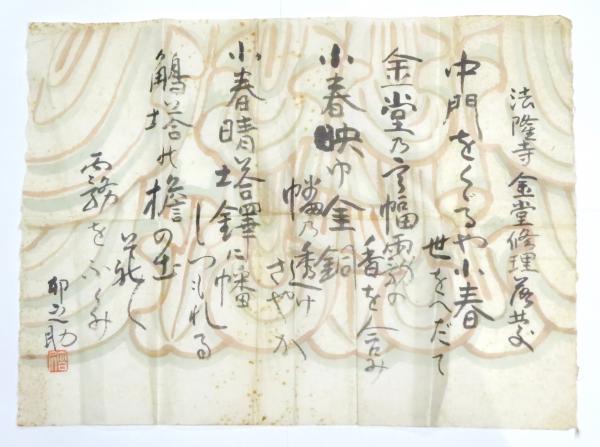 法隆寺 金堂修理落慶
中門をくぐるや小春
世をへだて
金堂乃幡雨霧の
香を含み
小春映ゆ金銅
幡乃透け
さやか
小春晴塔鐸に幡
しづもれる
塔檐の出
雨霧をふくみ
之助